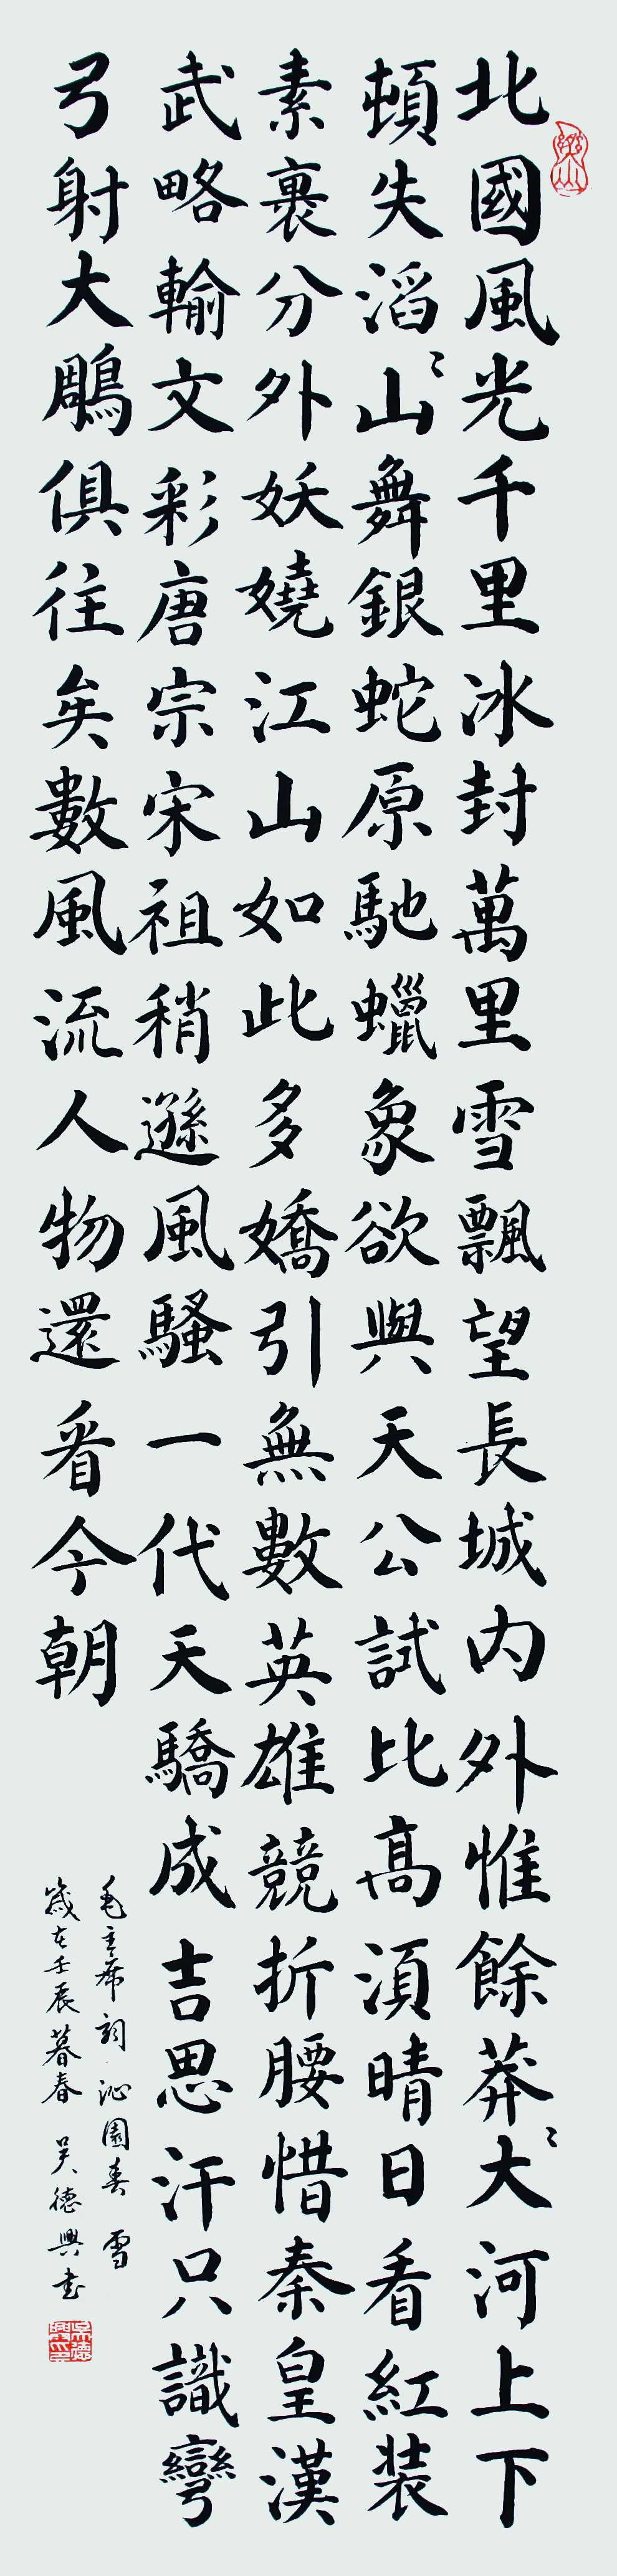 北國風光千里冰封萬里雪飄望長城内外惟餘莽〻大河上下
頓失滔〻山舞銀蛇原馳蠟象欲與天公試比高須晴日看紅装
素裹分外妖嬈江山如此多嬌引無數英雄競折腰惜秦皇漢
武略輸文彩唐宗宋祖稍遜風騷一代天驕成吉思汗只識彎
弓射大鵰俱往矣數風流人物還看今朝
毛主席詞沁園春雪
歲在壬辰暮春吳德興書